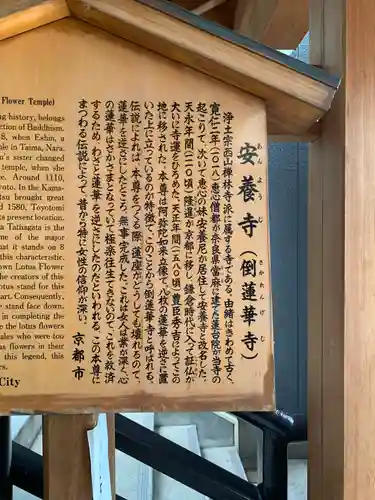 安養寺(倒蓮華寺)
あんようじ
さかれんげじ
浄土宗西山禅林寺派に属する寺である。由緒はきわめて古く、
寛仁二年(一〇一八)恵心僧都が奈良県當麻に建てた蓮台院が当寺の
起こりで、次いで恵心の妹安養尼が居住して安養寺と改名した。
天永年間(一一一〇)隆暹が京都に移し、鎌倉時代に入って証仏が
大いに寺運をひろめた。天正年間(一五八〇頃)豊臣秀吉によってこの
地に移された。本尊は阿弥陀如来立像で、八枚の蓮華を逆さにし
いた上に立っているのが特徴で、このことから倒蓮華寺と呼ばれる。
伝説によれば、本尊をつくる際、蓮座がどうしても壊れるので、
蓮華を逆さにしたところ、無事完成した。これは女人は業が深く、心
の蓮華はさかさまとなっていて極楽往生できないので、これを救済
するため、わざと蓮華を逆さにしたのだといわれる。この本尊に
まつわる伝説によって、昔から特に女性の信仰が深い。
京都市
Flower Temple)
ng history, belongs
ction of Buddhism.
8, when Eshin, a
le in Taima, Nara.
n's sister changed
temple, when she
ce. Around 1110,
oto. In the Kama-
tsu brought great
nd 1580, Toyotomi
ts present location.
a Tathagata is the
ne of the major
at it stands on 8
this characteristic.
down Lotus Flower
he creators of this
otus stand for this
art. Consequently,
stand face down.
in completing the
he lotus flowers
ales who were too
us flowers in their
this legend, this
n.
City